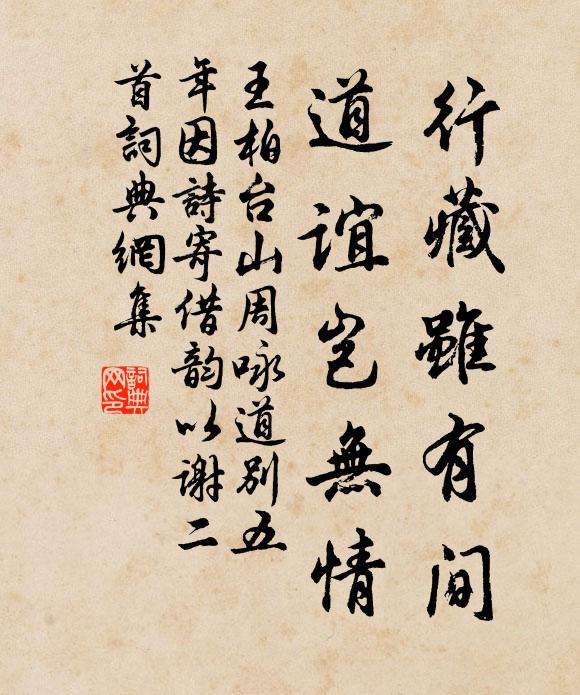 行藏雖有间
道誼豈無情
王柏台山周咏道别五
年因詩寄借韵以谢二
首詞典網集
詞典
网印